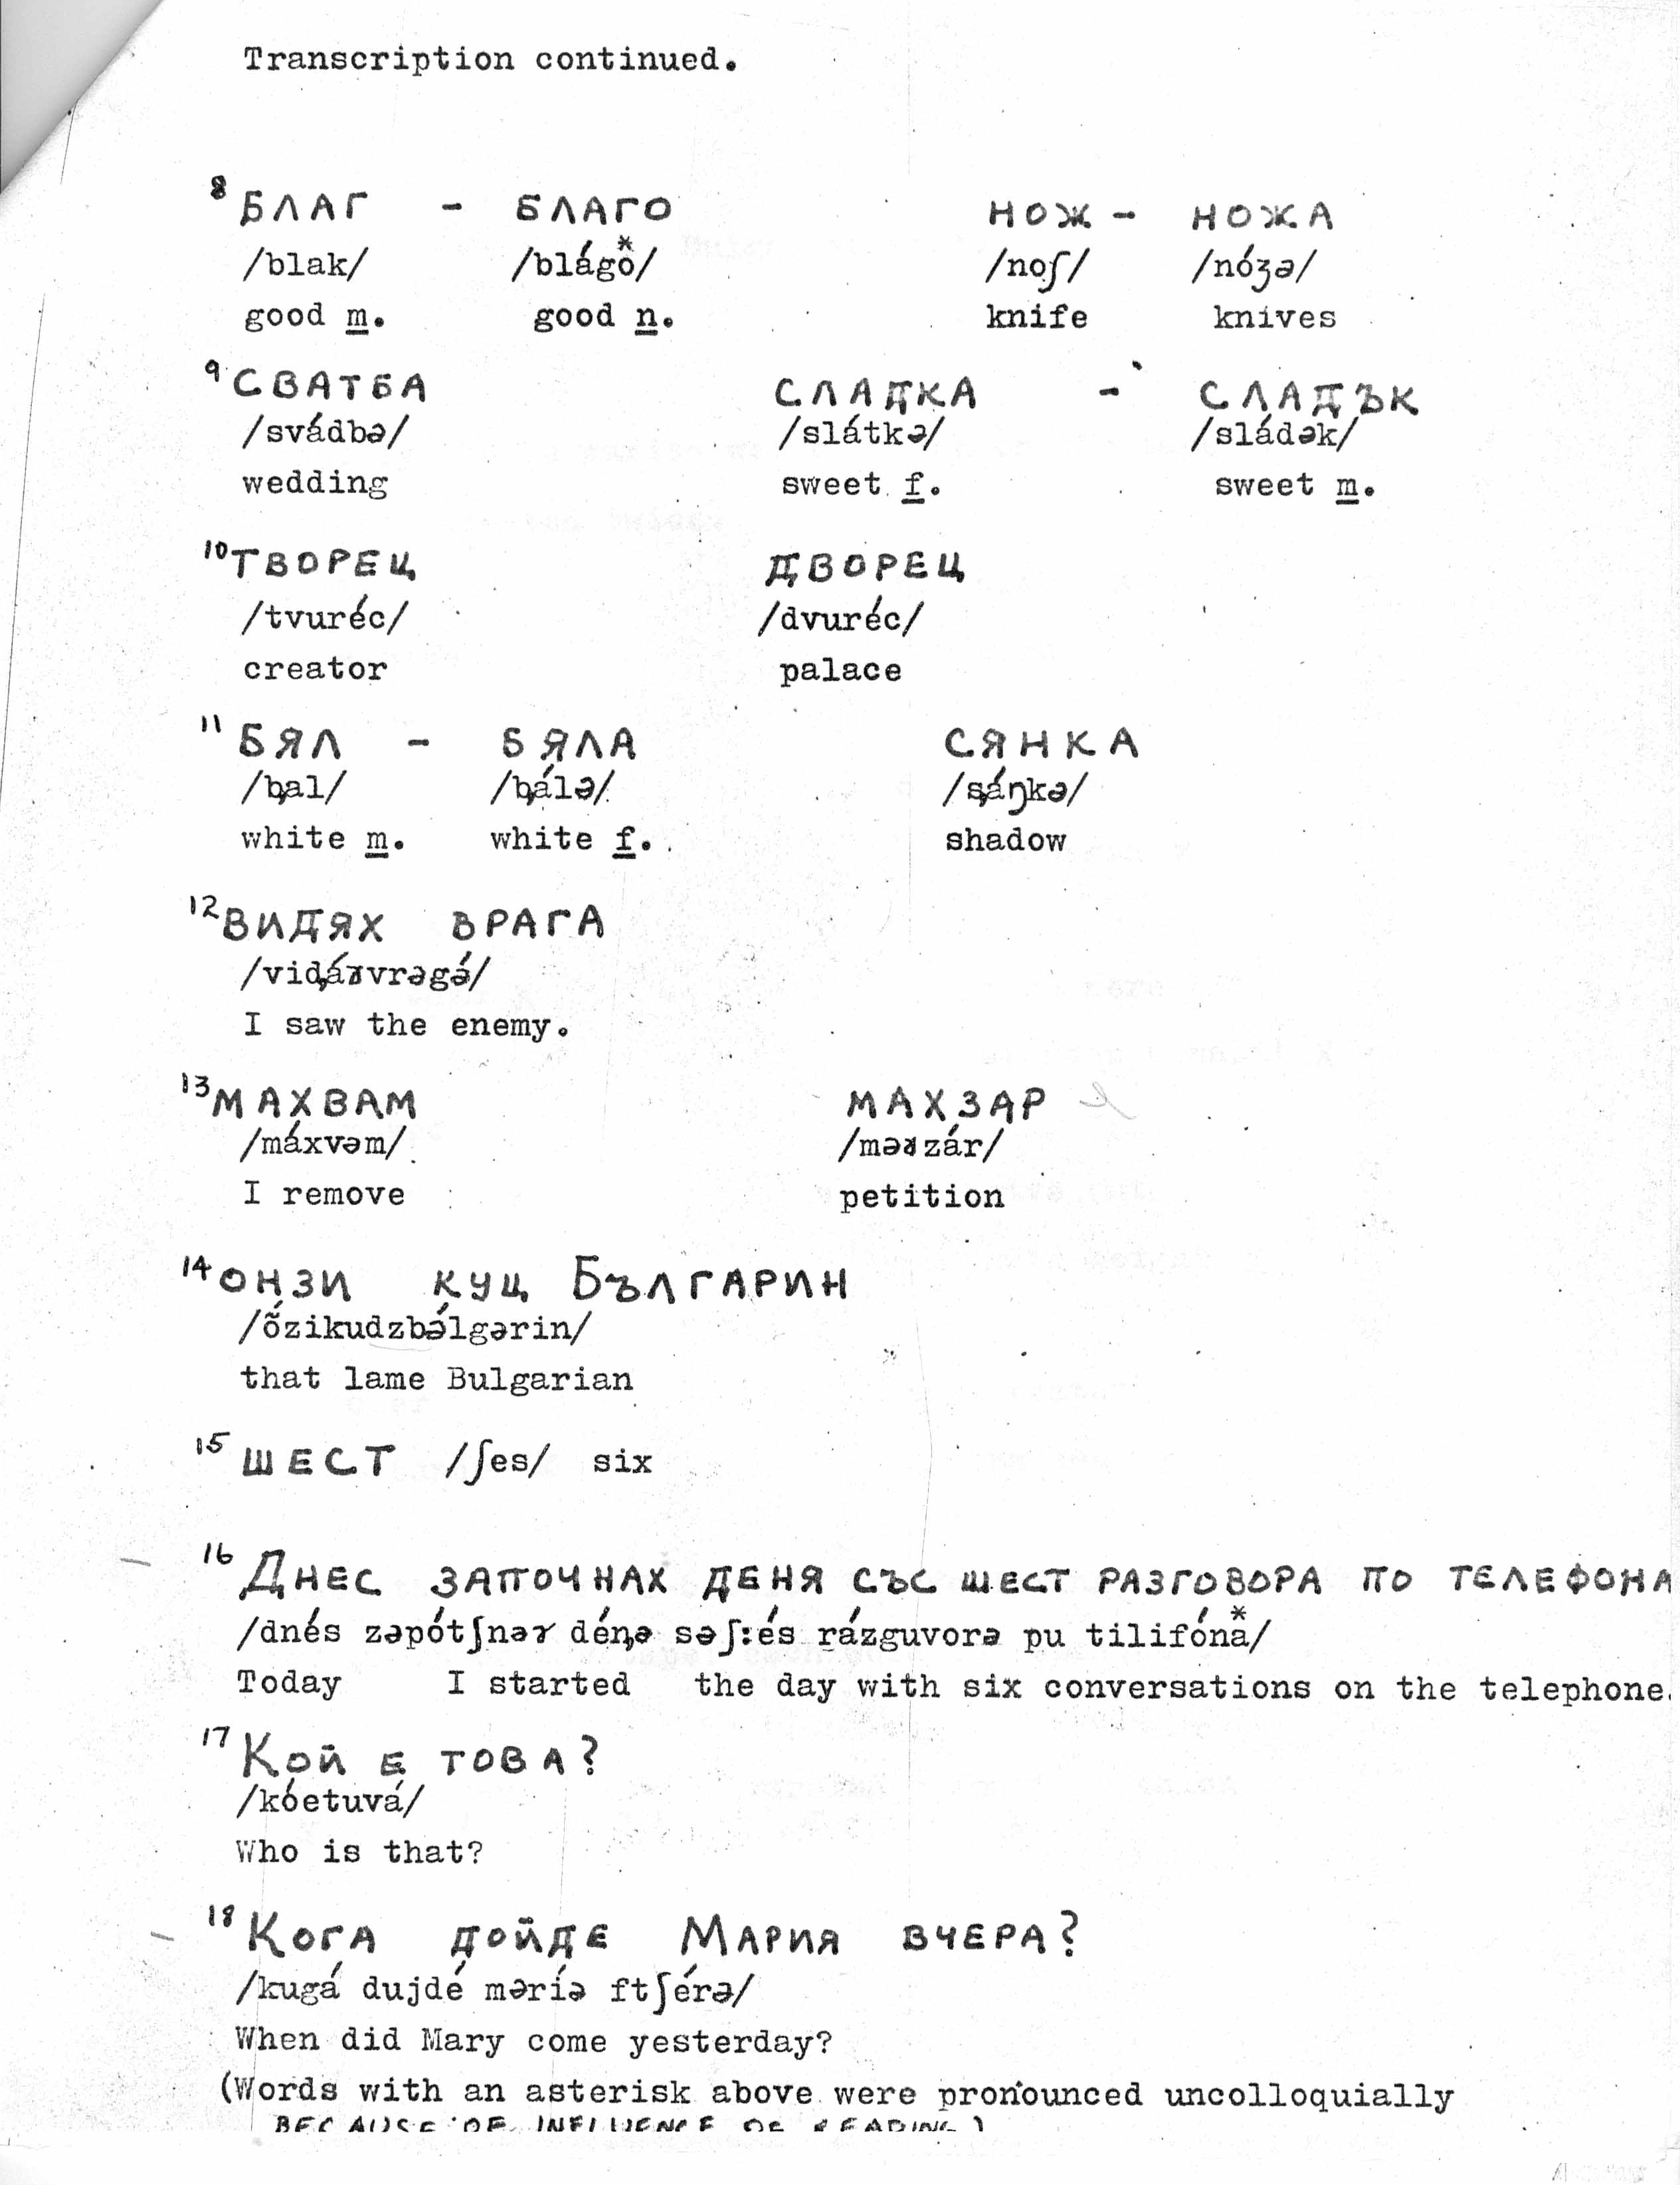 Transcription continued.
8 БЛАГ - БЛАГО НОЖ - НОЖА
/blak/ /blágo*/ /noʃ/ /nóʒə/
good m. good n. knife knives
9 СВАТБА СЛАДКА - СЛАДЪК
/svádbə/ /slátkə/ /sládək/
wedding sweet f. sweet m.
10 ТВОРЕЦ ДВОРЕЦ
/tvuréc/ /dvuréc/
creator palace
11 БЯЛ - БЯЛА СЯНКА
/b̡al/ /b̡álə/ /s̡áŋkə/
white m. white f. shadow
12 ВИДЯХ ВРАГА
/vid̡áɤvrəgə́/
I saw the enemy.
13 МАХВАМ МАХЗАР
/máxvəm/ /məɤzár/
I remove petition
14 ОНЗИ КУЦ БЪЛГАРИН
/ṍzikudzbə́lgərin/
that lame Bulgarian
15 ШЕСТ /ʃes/ six
16 ДНЕС ЗАПОЧНАХ ДЕНЯ СЪС ШЕСТ РАЗГОВОРА ПО ТЕЛЕФОНА
/dnés zəpótʃnəɤ dén̡ə səʃ:és rázguvorə pu tilifóna*/
Today I started the day with six conversations on the telephone.
17 КОЙ Е ТОВА?
/kóetuvá/
Who is that?
18 КОГА ДОЙДЕ МАРИЯ ВЧЕРА?
/kugá dujdé məríə ftʃérə/
When did Mary come yesterday?
(Words with an asterisk above were pronounced uncolloquially
BECAUSE OF INFLUENCE OF READING)